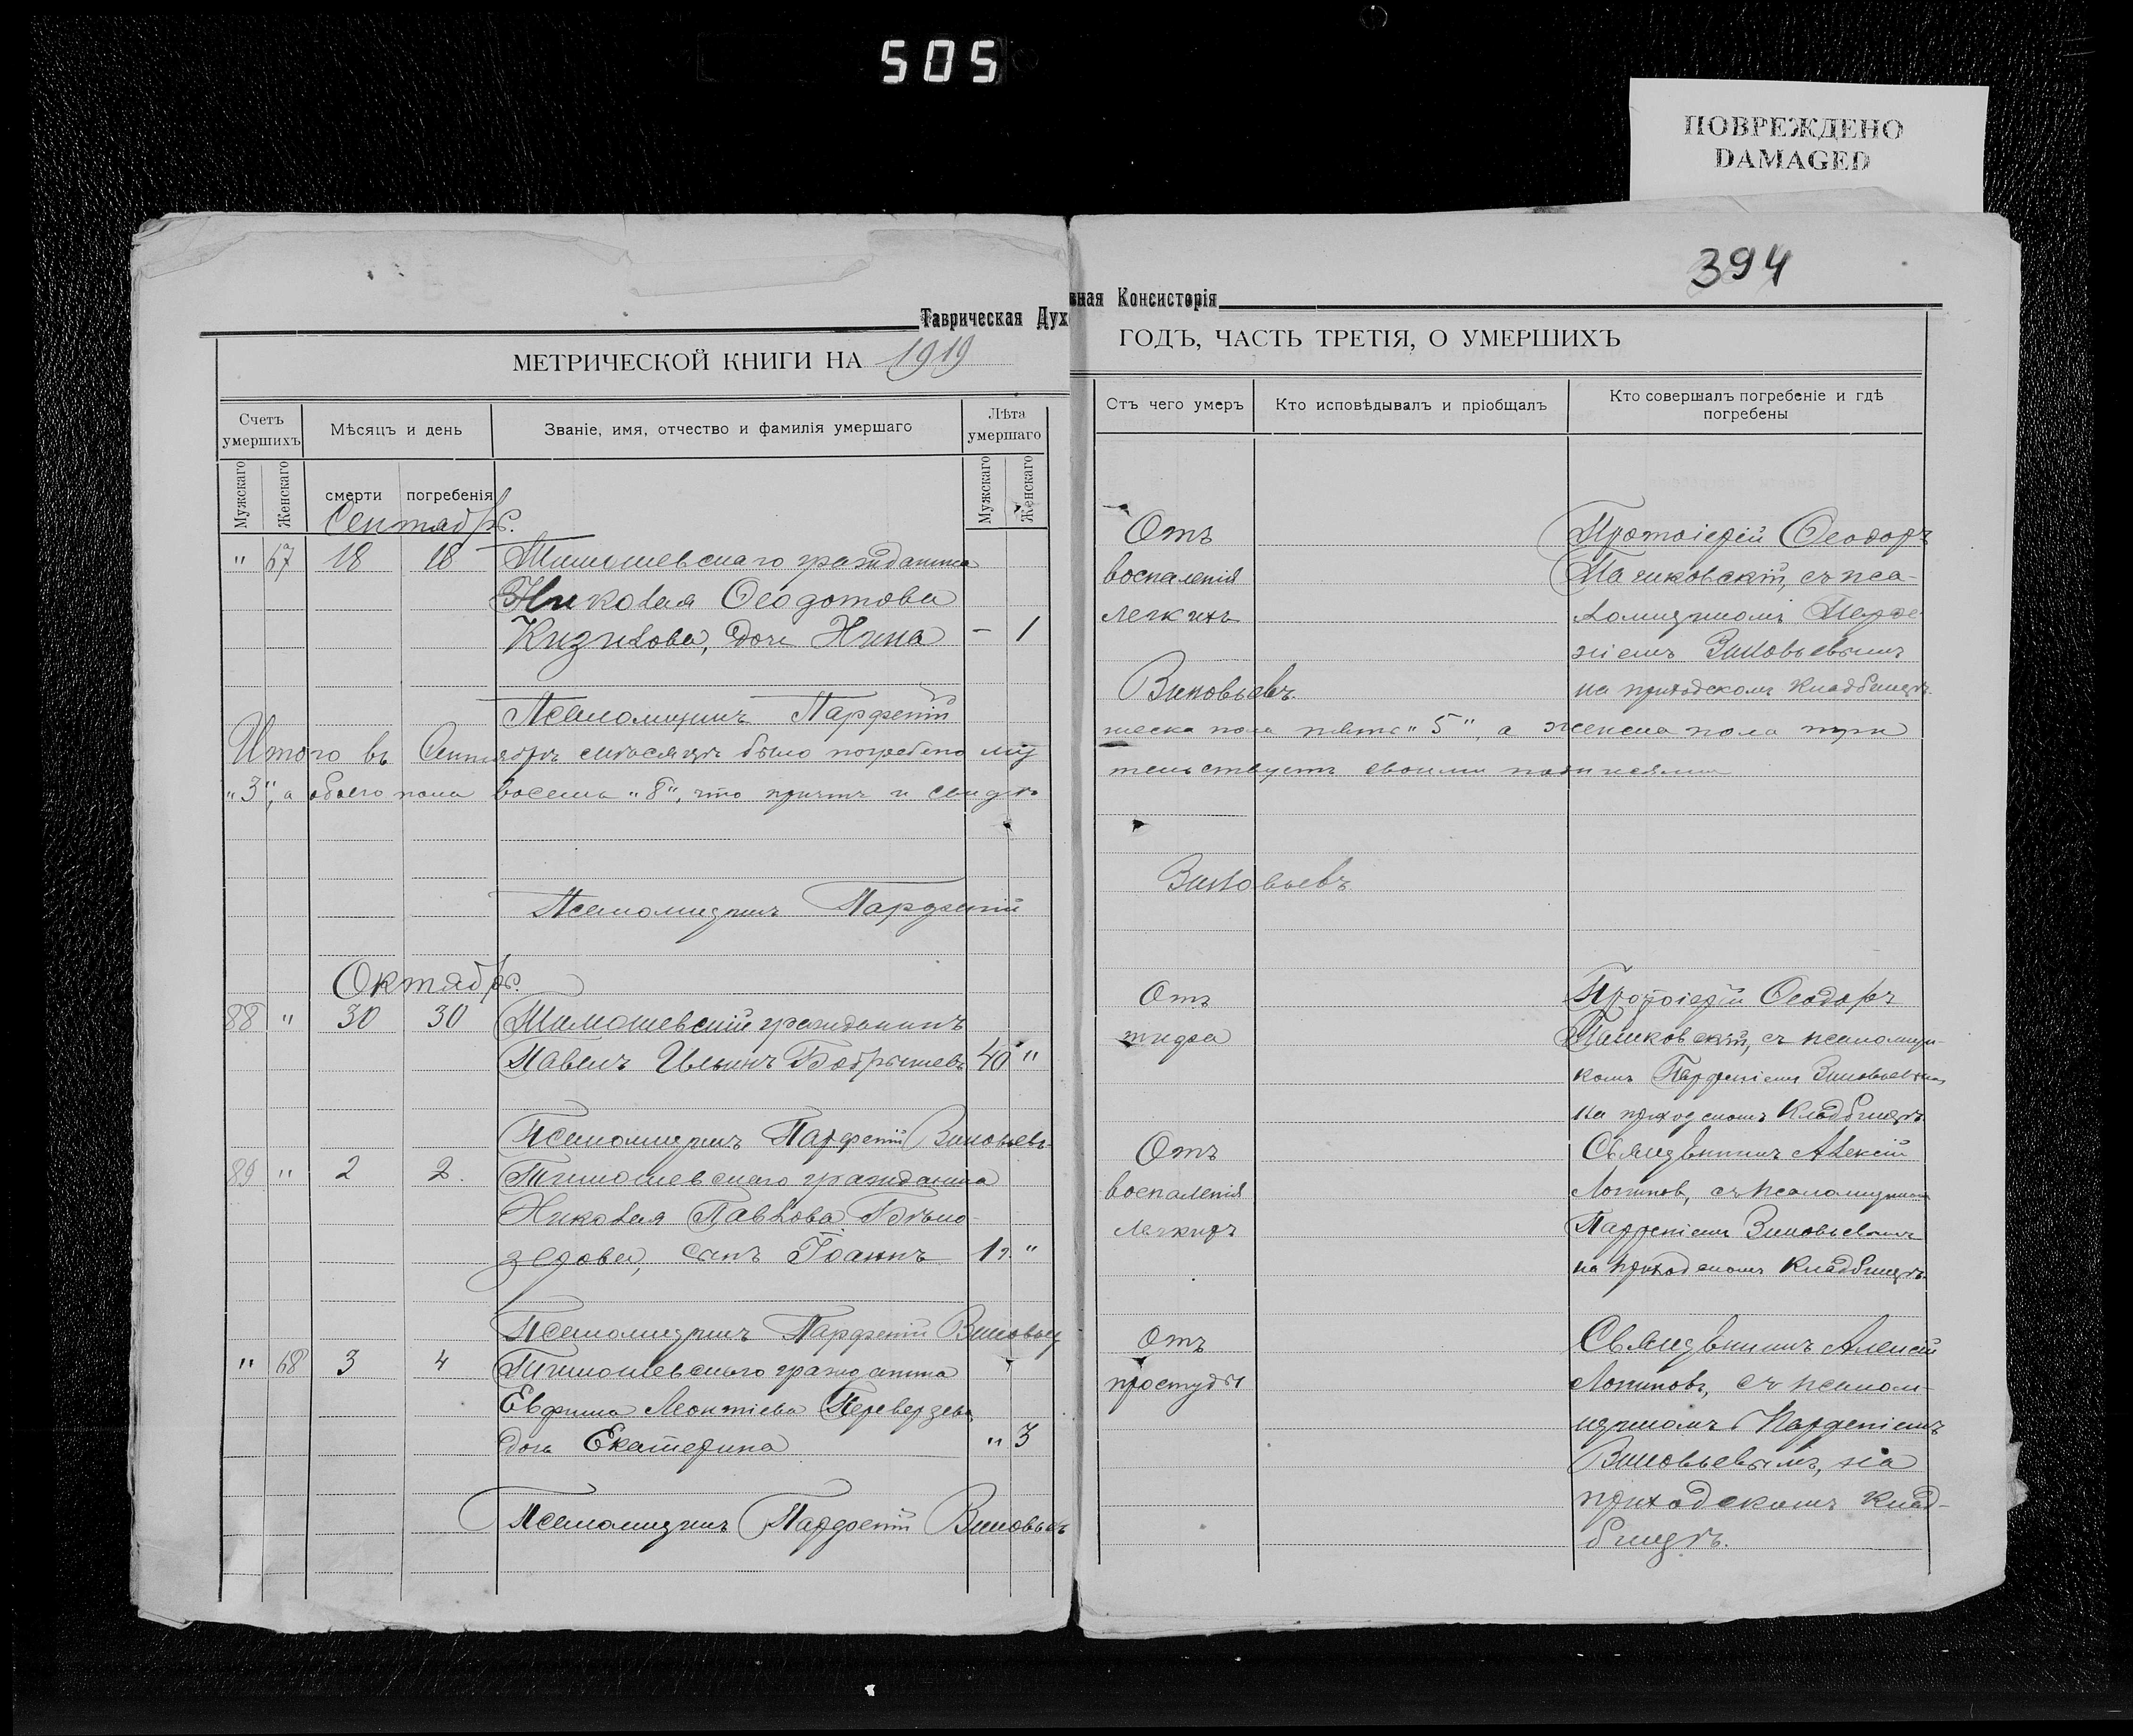 505
ПОВРЕЖДЕНО
DAMAGED
394
Таврическая Дух
вная Консисторія
МЕТРИЧЕСКОЙ КНИГИ НА 1919
ГОДЪ, ЧАСТЬ ТРЕТІЯ, О УМЕРШИХЪ
Счетъ умершихъ
Мѣсяцъ и день
Званіе, имя, отчество и фамилія умершаго
Лѣта умершаго
Мужскаго
Женскаго
смерти
погребенія
Мужскаго
Женскаго
Отъ чего умеръ
Кто исповѣдывалъ и пріобщалъ
Кто совершалъ погребеніе и гдѣ
погребены
Сентябрь.
" 67 18 18 Тимошевскаго гражданина
Николая Ѳеодотова
Кизилова, дочь Нина — 1
Псаломщикъ Парфеній
Итого въ Сентябрѣ мѣсяцѣ было погребено му
"3", а обоего пола восемь "8", что причтъ и свидѣ
Псаломщикъ Парфеній
Октябрь.
88 " 30 30 Тимошевскій гражданинъ
Павелъ Ильинъ Бобрышевъ 40 "
Псаломщикъ Парфеній Зиновьевъ
89 " 2 2. Тимошевскаго гражданина
Николая Павлова
сынъ Іоаннъ 1 г. "
Псаломщикъ Парфеній Зиновьев
" 68 3 4 Тимошевскаго гражданина
Евфима Леонтіева Переверзева
дочь Екатерина " 3
Псаломщикъ Парфеній Зиновьевъ
Отъ
воспаленія
легкихъ
Зиновьевъ.
жеска пола пять "5", а женска пола три
тельствуетъ своими подписями
Зиновьевъ
Отъ
тифа
Отъ
воспаленія
Легкихъ
Отъ
простуды
Протоіерей Ѳеодоръ
съ пса-
ломщикомъ Парфе
ніемъ Зиновьевымъ
на приходскомъ кладбищѣ.
Протоіерей Ѳеодоръ
съ псаломщи-
комъ Парфеніемъ Зиновьевымъ
на приходскомъ Кладбищѣ
Священникъ Алексій
Логиновъ, съ псаломщикомъ
Парфеніемъ Зиновьевымъ
на приходскомъ Кладбищѣ.
Священникъ Алексій
Логиновъ, съ псалом-
щикомъ Парфеніемъ
Зиновьевымъ, на
приходскомъ Клад-
бищѣ.